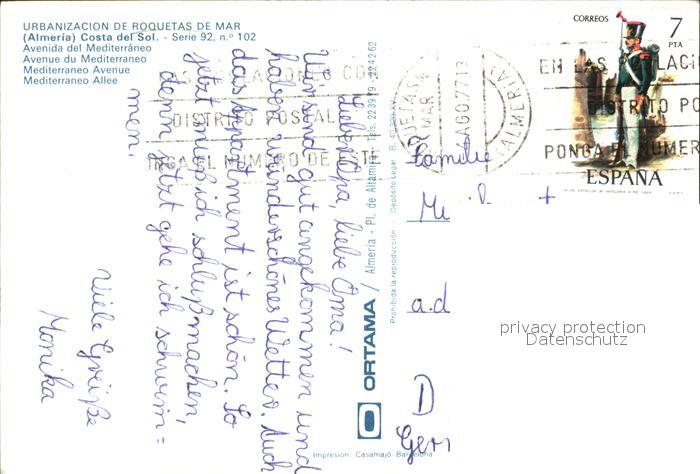 URBANIZACION DE ROQUETAS DE MAR
(Almería) Costa del Sol. - Serie 92, n.º 102
Avenida del Mediterráneo
Avenue du Mediterraneo
Mediterraneo Avenue
Mediterraneo Allee
Lieber Opa, liebe Oma!
Wir sind gut angekommen und
haben wunderschönes Wetter. Auch
das Apartment ist schön. So
jetzt muß ich schluß machen,
denn jetzt gehe ich schwim=
men.
Viele Grüße
Monika
ORTAMA / Almería - Pl. de Altamira - Tels. 22 39 79 - 22 42 62
Prohibida la reproducción - Depósito Legal B.
Impresión: Casamajó - Barcelona
CORREOS
7
PTA
ESPAÑA
DISTRITO POSTAL
PONGA EL NUMERO DE ESTE
EN LAS POBLACIONES CON
DISTRITO PO
PONGA EL NUMER
ROQUETAS
MAR
AGO 77 19
(ALMERIA)
Familie
a.d
D
Ger
privacy protection
Datenschutz